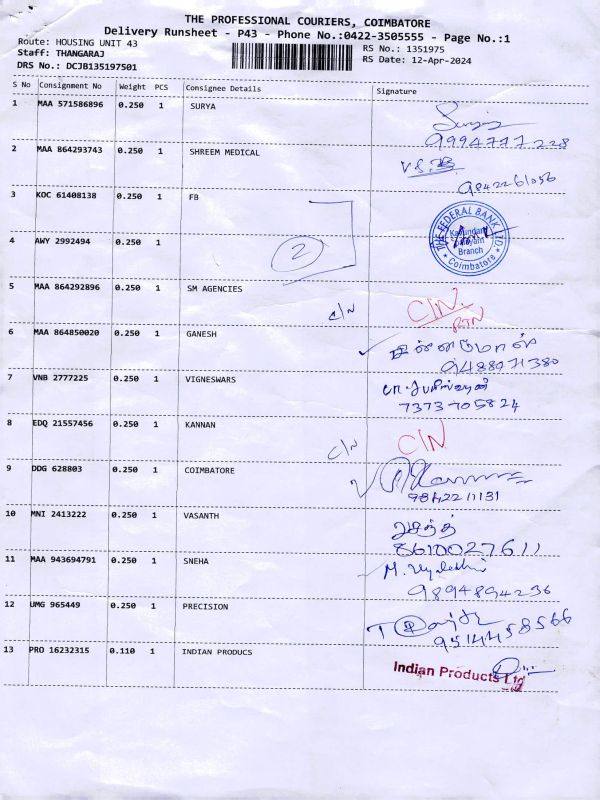 THE PROFESSIONAL COURIERS, COIMBATORE
Delivery Runsheet - P43 - Phone No.:0422-3505555 - Page No.:1
Route: HOUSING UNIT 43
RS No.: 1351975
Staff: THANGARAJ
RS Date: 12-Apr-2024
DRS No.: DCJB135197501
S No Consignment No Weight PCS Consignee Details Signature
1 MAA 571586896 0.250 1 SURYA
9994777228
2 MAA 864293743 0.250 1 SHREEM MEDICAL
9842261056
3 KOC 61408138 0.250 1 FB
THE FEDERAL BANK LTD.
Branch
* Coimbatore *
2
4 AWY 2992494 0.250 1
5 MAA 864292896 0.250 1 SM AGENCIES
C/N C/N.
RTN
6 MAA 864850020 0.250 1 GANESH
9488971380
7 VNB 2777225 0.250 1 VIGNESWARS
7373705824
8 EDQ 21557456 0.250 1 KANNAN
C/N C/N
9 DDG 628803 0.250 1 COIMBATORE
9842211131
10 MNI 2413222 0.250 1 VASANTH
வசந்த்
8610027611
11 MAA 943694791 0.250 1 SNEHA
9894894236
12 UMG 965449 0.250 1 PRECISION
9514458566
13 PRO 16232315 0.110 1 INDIAN PRODUCS
Indian Products Ltd